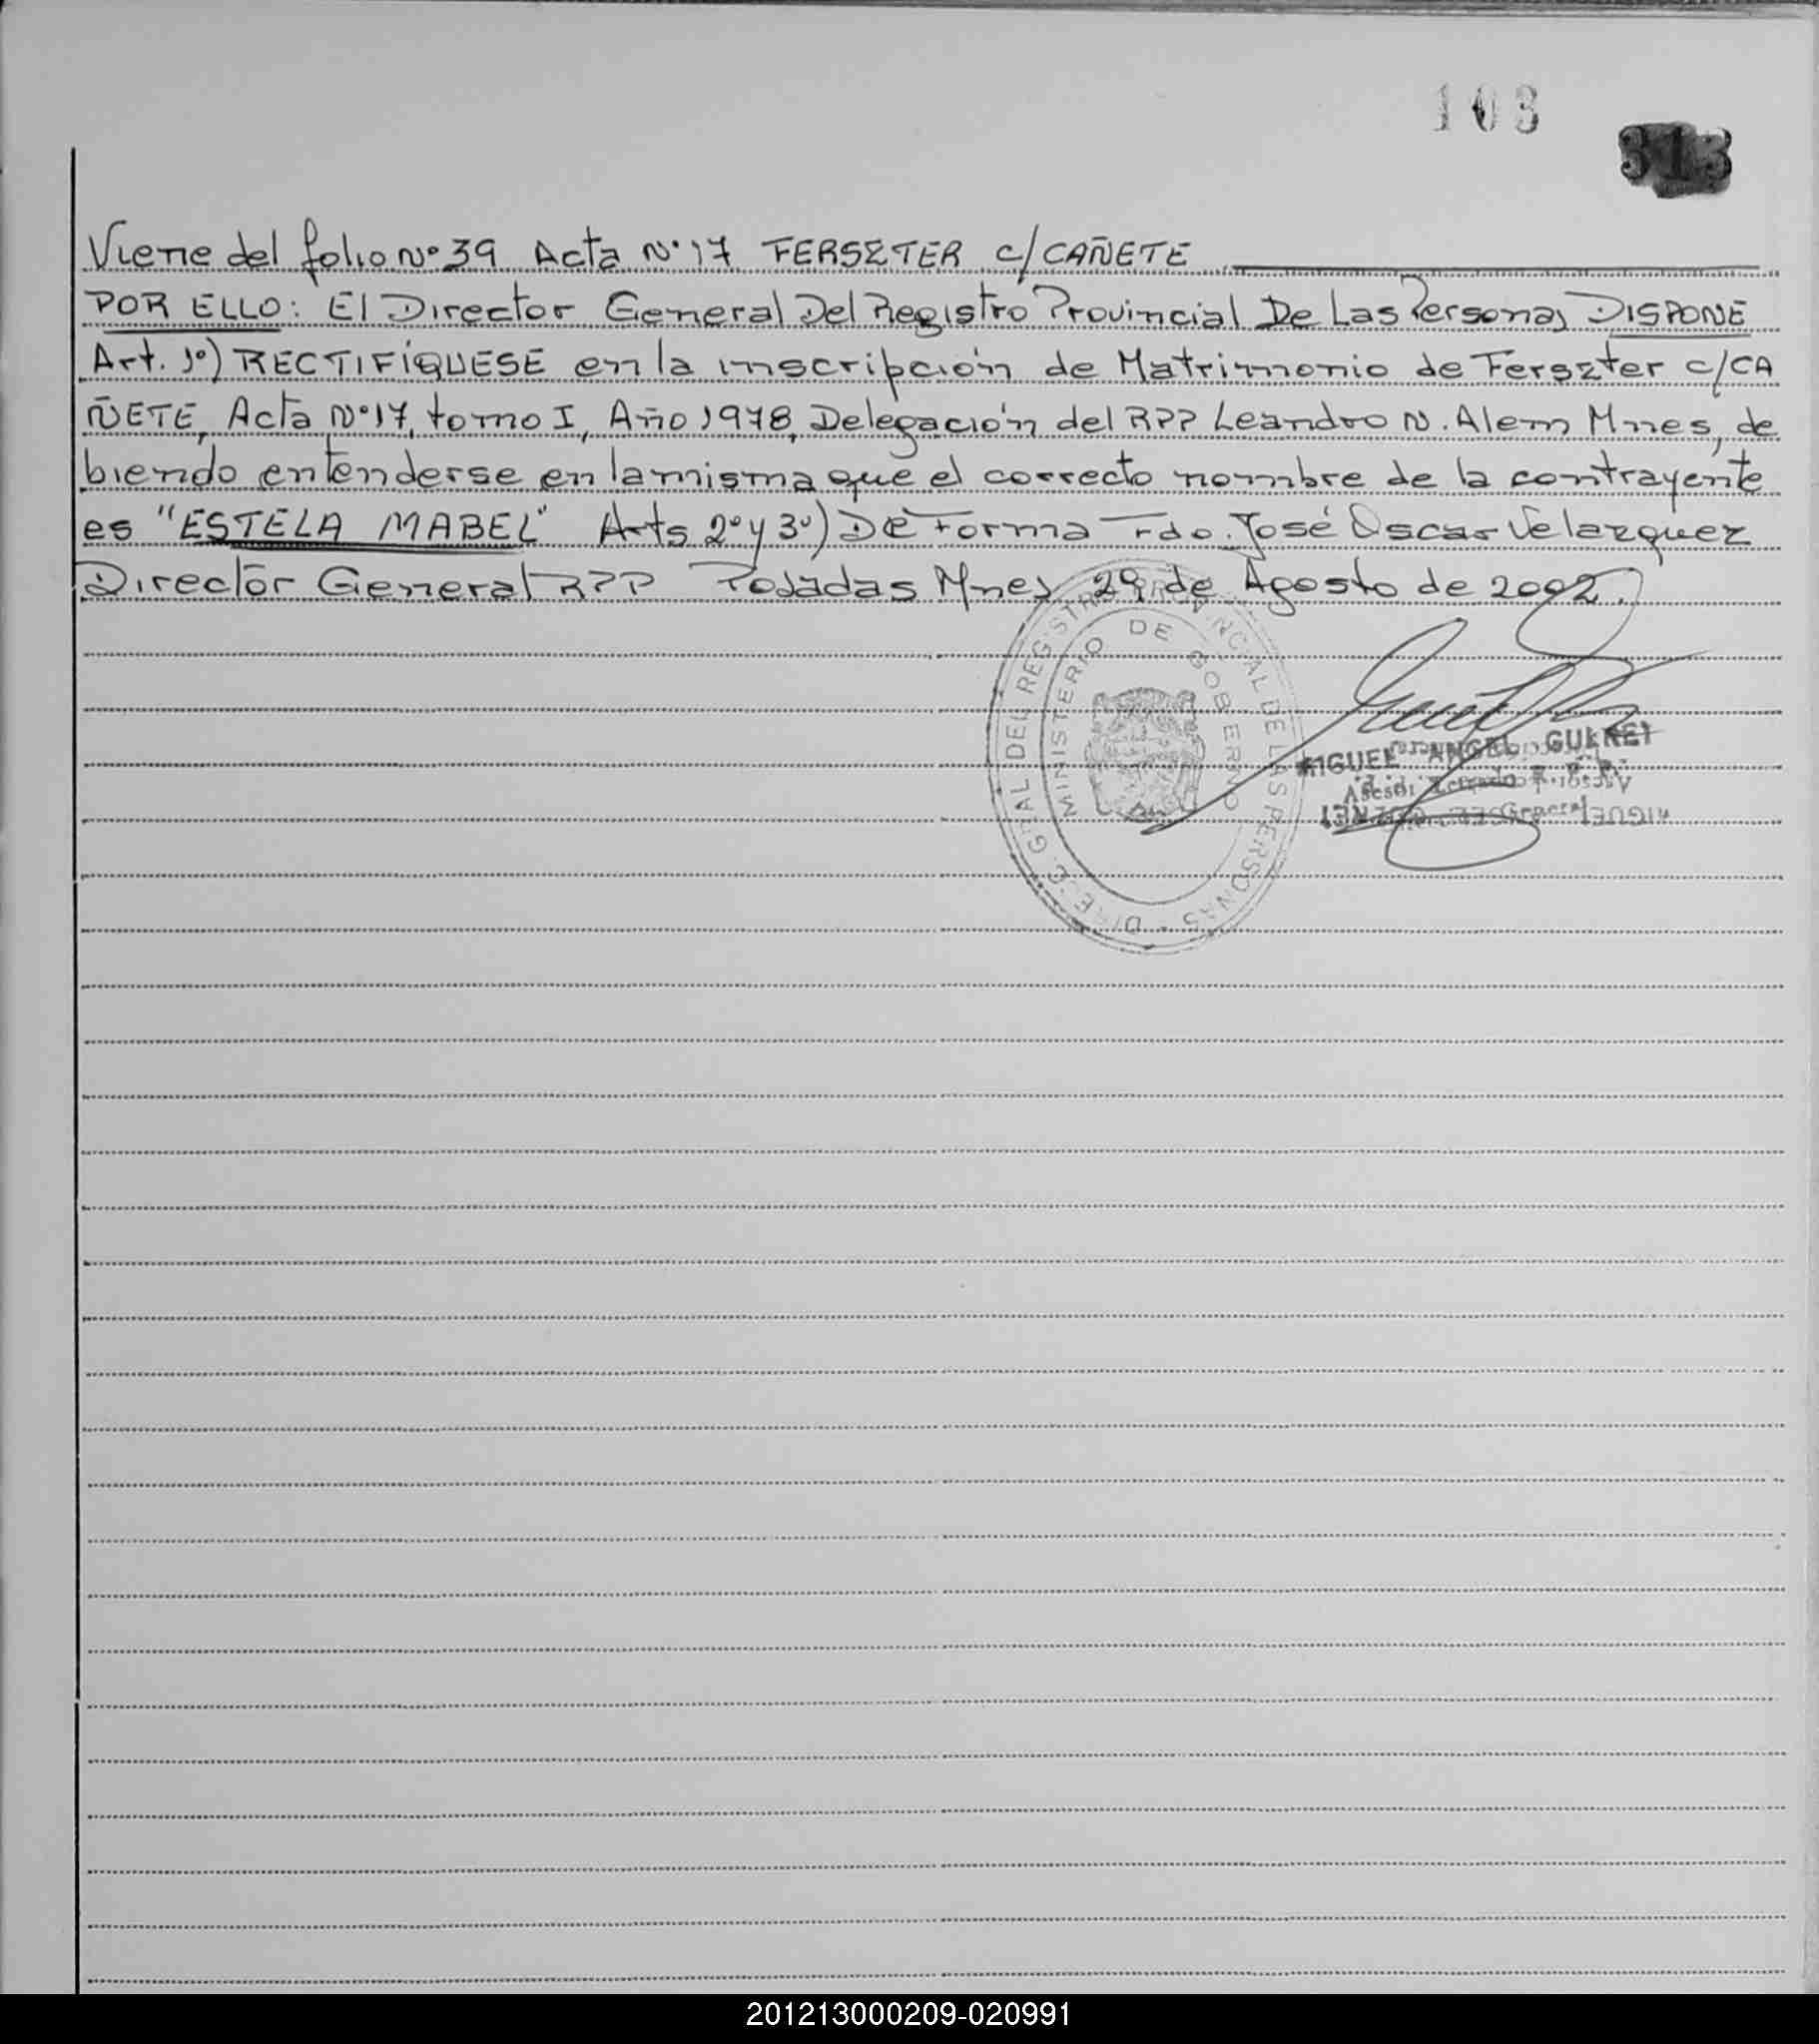 103
313
Viene del folio Nº 39 Acta Nº 17 FERSZTER c/ CAÑETE
POR ELLO: El Director General Del Registro Provincial De Las Personas DISPONE
Art. 1º) RECTIFÍQUESE en la inscripción de Matrimonio de Ferszter c/ CA
ÑETE, Acta Nº 17, tomo I, Año 1978, Delegación del RPP Leandro N. Alem Mnes, de
biendo entenderse en la misma que el correcto nombre de la contrayente
es "ESTELA MABEL" Arts 2º y 3º) DE Forma Fdo. José Oscar Velazquez
Director General RPP Posadas Mnes 29 de Agosto de 2002.
DIREC. GRAL DEL REGISTRO PROVINCIAL DE LAS PERSONAS
MINISTERIO DE GOBIERNO
MIGUEL ANGEL
201213000209-020991